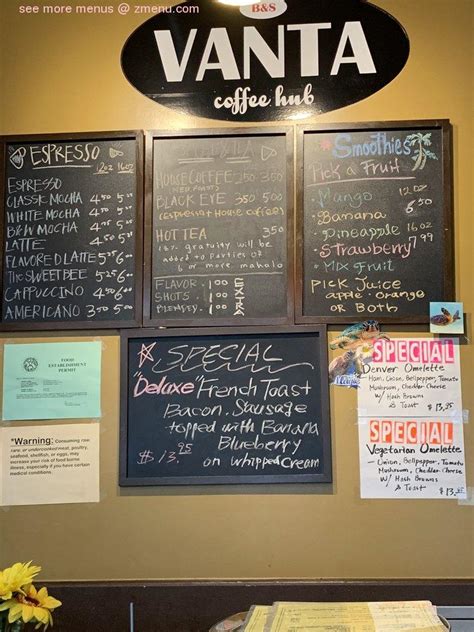 see more menus @ zmenu.com
B&S
VANTA
coffee hub
ESPRESSO 12oz 16oz
ESPRESSO
CLASSIC MOCHA 4.50 5.25
WHITE MOCHA 4.50 5.25
B&W MOCHA 4.50 5.25
LATTE
FLAVORED LATTE 5.25 6.00
THE SWEET BEE 5.25 6.00
CAPPUCCINO
AMERICANO 3.50 5.00
HOUSE COFFEE 2.50 3.50
BLACK EYE 3.50 5.00
(Espresso + House Coffee)
HOT TEA 3.50
gratuity will be
added to parties of
6 or more mahalo
FLAVOR 1.00
SHOTS 1.00
EXTRA
Smoothies
Pick a Fruit
Mango 12oz
Banana 6.50
Pineapple 16oz
Strawberry 7.99
MIX Fruit
PICK JUICE
apple · orange
or Both
SPECIAL
"Deluxe" French Toast
Bacon, Sausage
topped with Banana
Blueberry
$13.95 on whipped cream
FOOD
ESTABLISHMENT
PERMIT
*Warning: Consuming raw,
rare, or undercooked meat, poultry,
seafood, shellfish, or eggs, may
increase your risk of food borne
illness, especially if you have certain
medical conditions.
SPECIAL
Denver Omelette
Ham, Onion, Bellpepper, Tomato
Mushroom, Cheddar Cheese
w/ Hash Browns
& Toast $13.25
SPECIAL
Vegetarian Omelette
- Onion, Bellpepper, Tomato
Mushroom, Cheddar Cheese
w/ Hash Browns
& Toast $13.